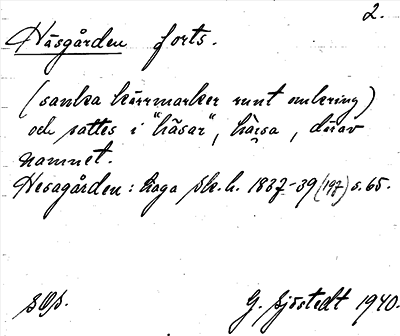 2.
Häsgården forts.
(sanka kärrmarker runt omkring)
och sattes i "häsar", hässa, därav
namnet.
Hesagården: Haga sk.h. 1837-39 (197) s. 65.
G. Sjöstedt 1940.